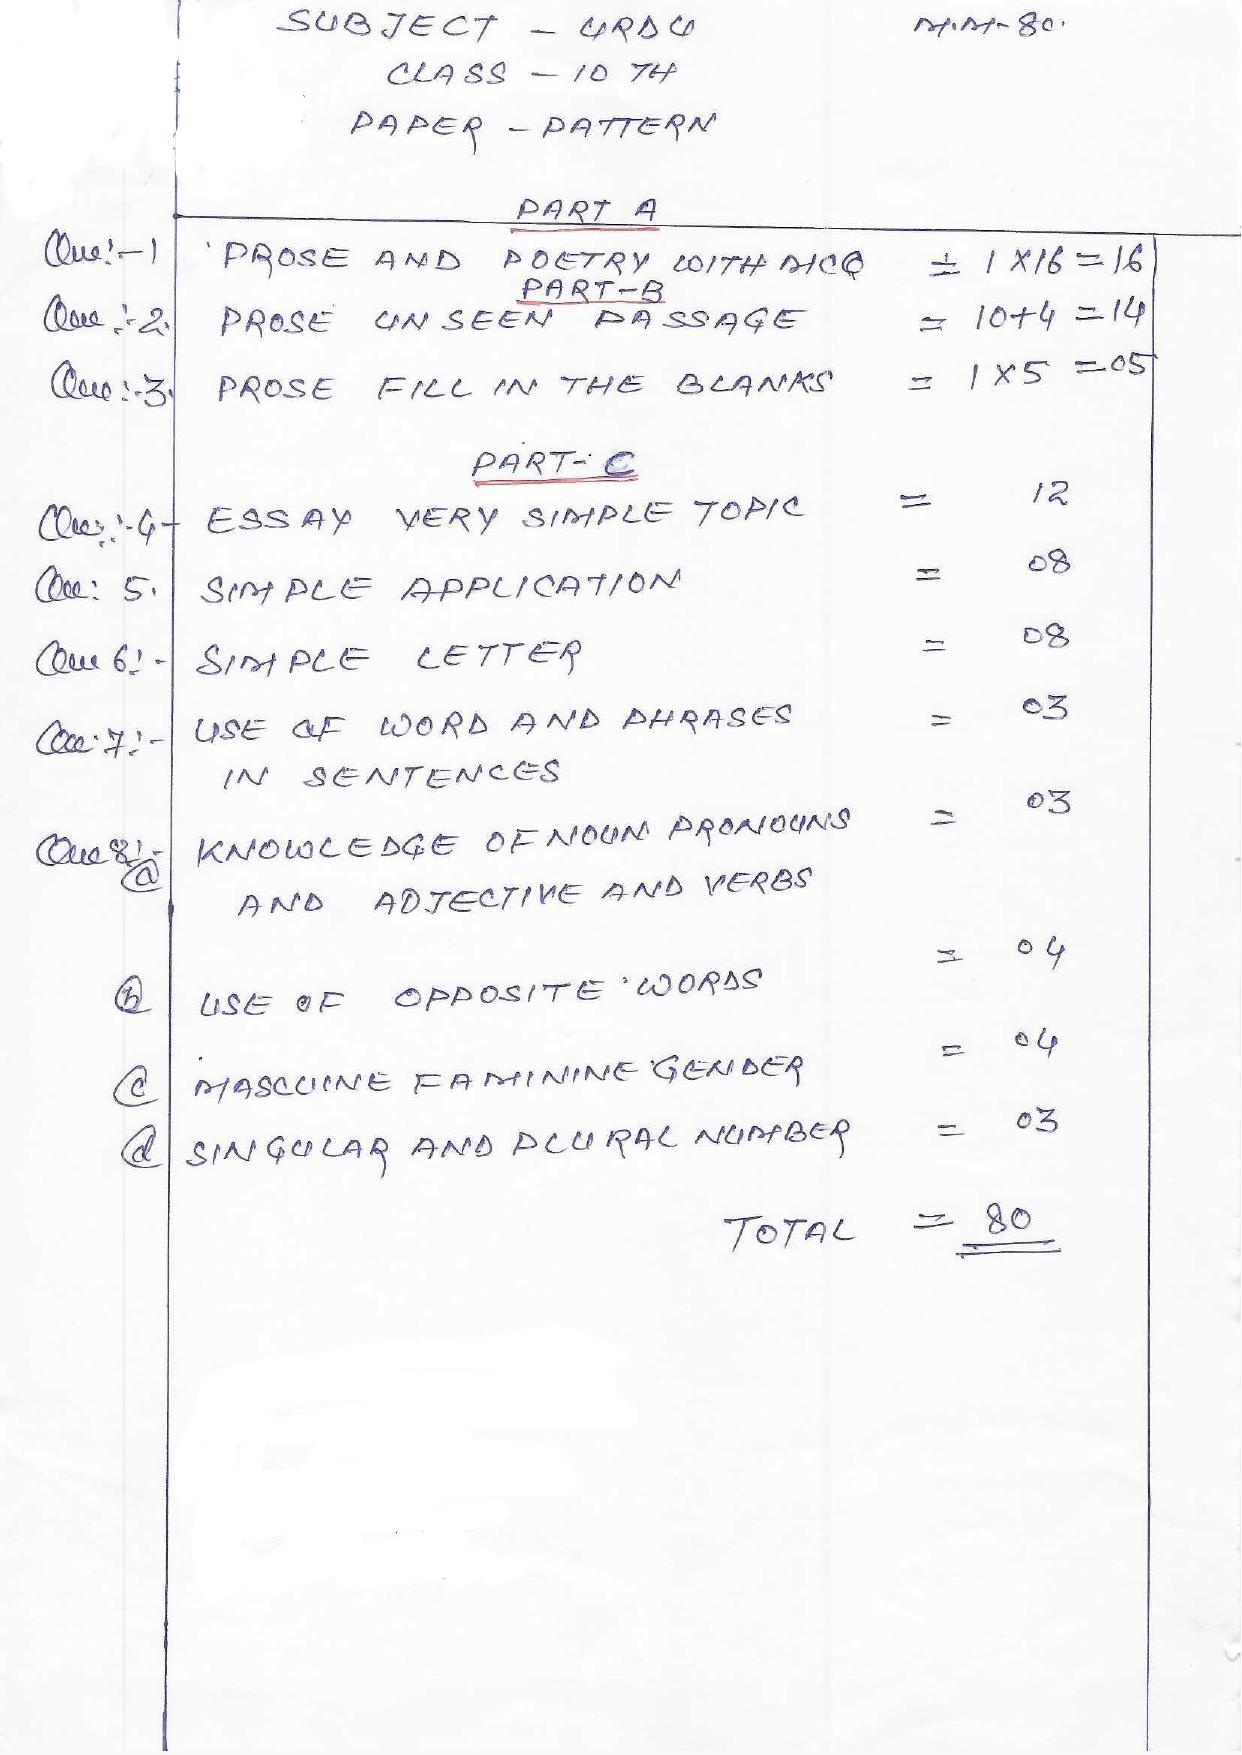 SUBJECT - URDU M.M-80.
CLASS - 10 TH
PAPER - PATTERN
PART A
Que:-1 PROSE AND POETRY WITH MCQ = 1 X 16 = 16
PART-B
Que:-2. PROSE UN SEEN PASSAGE = 10+4 = 14
Que:-3. PROSE FILL IN THE BLANKS = 1 X 5 = 05
PART-C
Que:-4- ESSAY VERY SIMPLE TOPIC = 12
Que: 5. SIMPLE APPLICATION = 08
Que 6:- SIMPLE LETTER = 08
Que.7:- USE OF WORD AND PHRASES = 03
IN SENTENCES
Que 8:- (a) KNOWLEDGE OF NOUN PRONOUNS = 03
AND ADJECTIVE AND VERBS
(b) USE OF OPPOSITE WORDS = 04
(c) MASCUINE FAMININE GENDER = 04
(d) SINGULAR AND PLURAL NUMBER = 03
TOTAL = 80